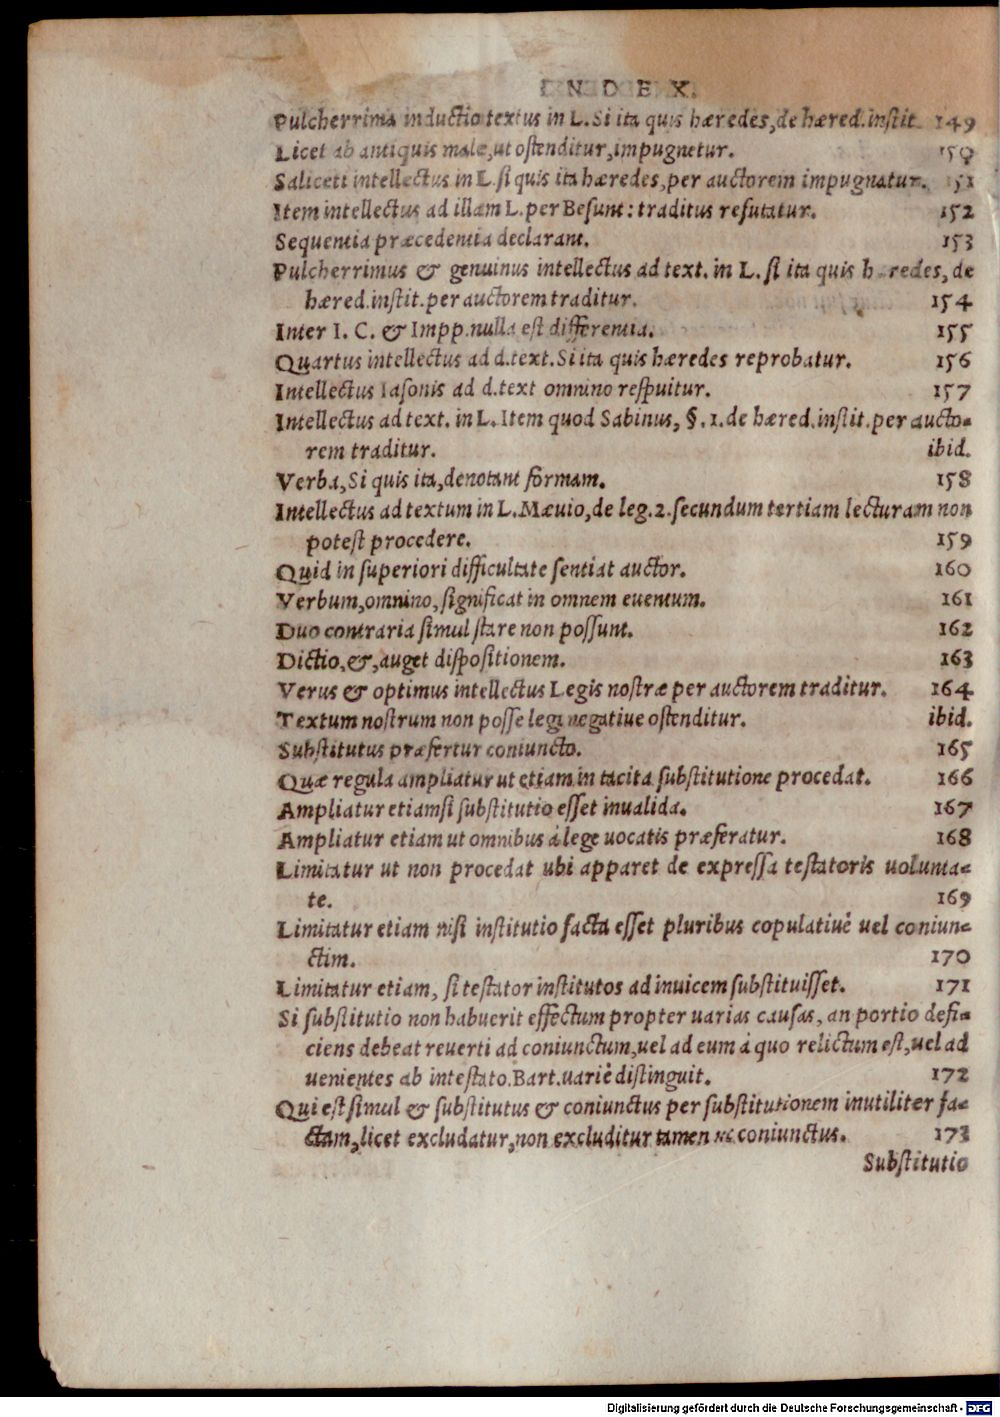 INDEX.
Pulcherrima inductio textus in L. Si ita quis hæredes, de hæred. instit. 149
Licet ab antiquis male, ut ostenditur, impugnetur. 150
Saliceti intellectus in L. si quis ita hæredes, per auctorem impugnatur. 151
Item intellectus ad illam L. per Besunt: traditus refutatur. 152
Sequentia præcedentia declarant. 153
Pulcherrimus & genuinus intellectus ad text. in L. si ita quis hæredes, de
hæred. instit. per auctorem traditur. 154
Inter I. C. & Impp. nulla est differentia. 155
Quartus intellectus ad d. text. Si ita quis hæredes reprobatur. 156
Intellectus Iasonis ad d. text omnino respuitur. 157
Intellectus ad text. in L. Item quod Sabinus, §. 1. de hæred. instit. per aucto-
rem traditur. ibid.
Verba, Si quis ita, denotant formam. 158
Intellectus ad textum in L. Mæuio, de leg. 2. secundum tertiam lecturam non
potest procedere. 159
Quid in superiori difficultate sentiat auctor. 160
Verbum, omnino, significat in omnem euentum. 161
Duo contraria simul stare non possunt. 162
Dictio, &, auget dispositionem. 163
Verus & optimus intellectus Legis nostræ per auctorem traditur. 164
Textum nostrum non posse legi negatiue ostenditur. ibid.
Substitutus præfertur coniuncto. 165
Quæ regula ampliatur ut etiam in tacita substitutione procedat. 166
Ampliatur etiamsi substitutio esset inualida. 167
Ampliatur etiam ut omnibus à lege uocatis præferatur. 168
Limitatur ut non procedat ubi apparet de expressa testatoris uolunta-
te. 169
Limitatur etiam nisi institutio facta esset pluribus copulatiuè uel coniun-
ctim. 170
Limitatur etiam, si testator institutos ad inuicem substituisset. 171
Si substitutio non habuerit effectum propter uarias causas, an portio defi-
ciens debeat reuerti ad coniunctum, uel ad eum à quo relictum est, uel ad
uenientes ab intestato. Bart. uariè distinguit. 172
Qui est simul & substitutus & coniunctus per substitutionem inutiliter fa-
ctam, licet excludatur, non excluditur tamen ut coniunctus. 173
Substitutio
Digitalisierung gefördert durch die Deutsche Forschungsgemeinschaft - DFG